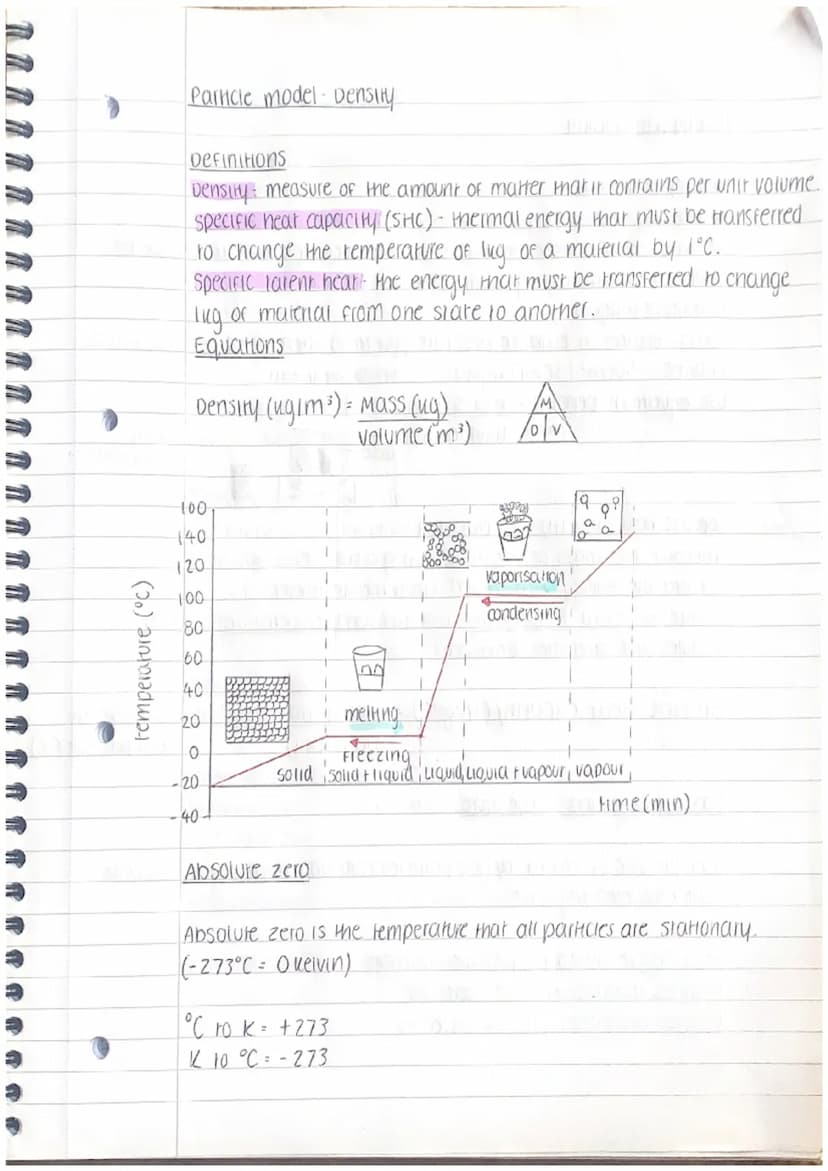 Particle model - Density
Definitions
Density: measure of the amount of matter that it contains per unit volume.
Specific heat capacity (SHC) - thermal energy that must be transferred
to change the temperature of 1kg of a material by 1°C.
Specific latent heat - the energy that must be transferred to change
1kg of material from one state to another.
Equations
Density (kg/m³) = Mass (kg)
volume (m³)
M
D V
temperature (°C)
160
140
120
100
80
60
40
20
0
-20
-40
vaporisation
condensing
melting
Freezing
solid solid + liquid liquid liquid + vapour vapour
time (min)
Absolute zero
Absolute zero is the temperature that all particles are stationary.
(-273°C = 0 kelvin)
°C to K = +273
K to °C = -273